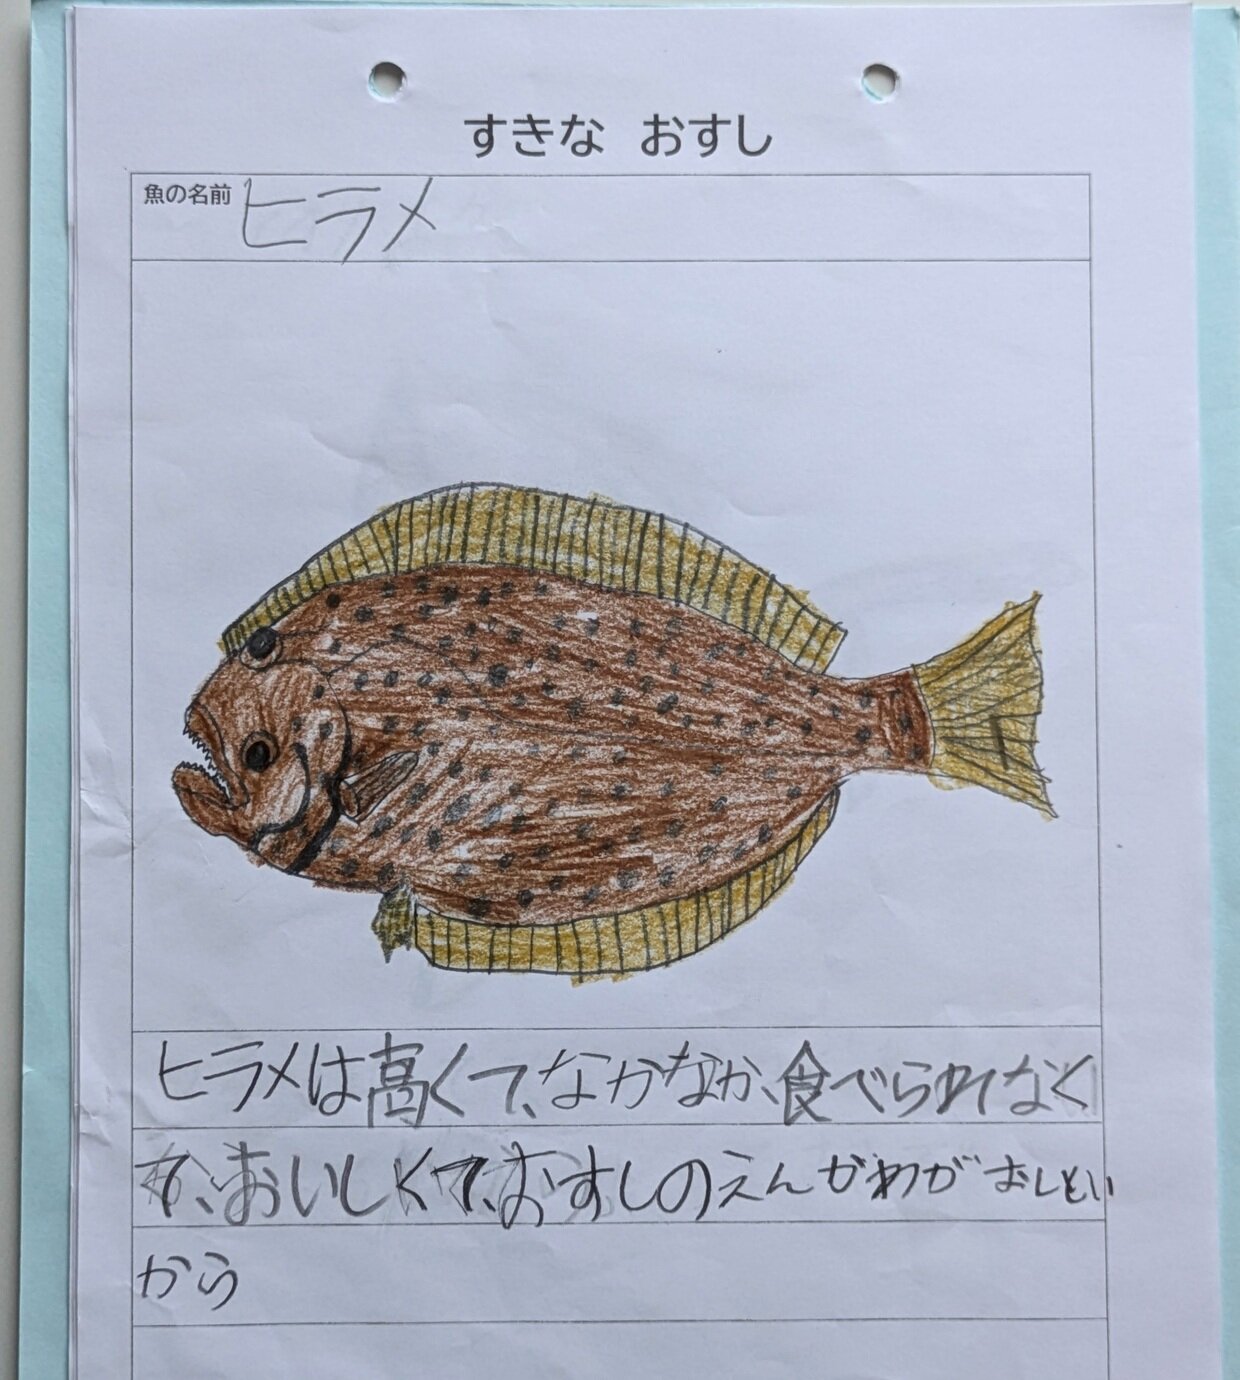 すきな おすし
魚の名前 ヒラメ
ヒラメは高くて、なかなか、食べられなく
て、おいしくて、おすしのえんがわがおし
から